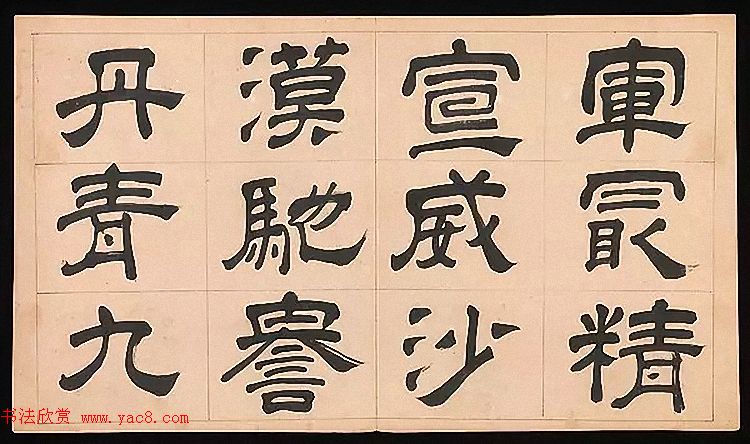 軍冣精
宣威沙
漠馳譽
丹青九
书法欣赏 www.yac8.com